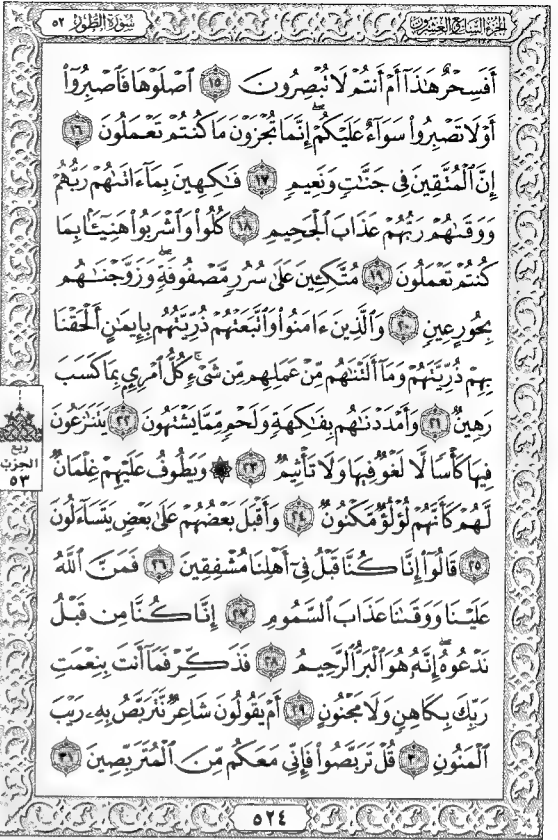 الجزء السابع والعشرون
سورة الطور ٥٢
أَفَسِحْرٌ هَٰذَآ أَمْ أَنتُمْ لَا تُبْصِرُونَ ١٥ ٱصْلَوْهَا فَٱصْبِرُوٓا۟
أَوْ لَا تَصْبِرُوا۟ سَوَآءٌ عَلَيْكُمْ ۖ إِنَّمَا تُجْزَوْنَ مَا كُنتُمْ تَعْمَلُونَ ١٦
إِنَّ ٱلْمُتَّقِينَ فِى جَنَّٰتٍ وَنَعِيمٍ ١٧ فَٰكِهِينَ بِمَآ ءَاتَىٰهُمْ رَبُّهُمْ
وَوَقَىٰهُمْ رَبُّهُمْ عَذَابَ ٱلْجَحِيمِ ١٨ كُلُوا۟ وَٱشْرَبُوا۟ هَنِيٓـًٔۢا بِمَا
كُنتُمْ تَعْمَلُونَ ١٩ مُتَّكِـِٔينَ عَلَىٰ سُرُرٍ مَّصْفُوفَةٍ ۖ وَزَوَّجْنَٰهُم
بِحُورٍ عِينٍ ٢٠ وَٱلَّذِينَ ءَامَنُوا۟ وَٱتَّبَعَتْهُمْ ذُرِّيَّتُهُم بِإِيمَٰنٍ أَلْحَقْنَا
بِهِمْ ذُرِّيَّتَهُمْ وَمَآ أَلَتْنَٰهُم مِّنْ عَمَلِهِم مِّن شَىْءٍ ۚ كُلُّ ٱمْرِئٍۭ بِمَا كَسَبَ
رَهِينٌ ٢١ وَأَمْدَدْنَٰهُم بِفَٰكِهَةٍ وَلَحْمٍ مِّمَّا يَشْتَهُونَ ٢٢ يَتَنَٰزَعُونَ
فِيهَا كَأْسًا لَّا لَغْوٌ فِيهَا وَلَا تَأْثِيمٌ ٢٣ ۞ وَيَطُوفُ عَلَيْهِمْ غِلْمَانٌ
لَّهُمْ كَأَنَّهُمْ لُؤْلُؤٌ مَّكْنُونٌ ٢٤ وَأَقْبَلَ بَعْضُهُمْ عَلَىٰ بَعْضٍ يَتَسَآءَلُونَ
٢٥ قَالُوٓا۟ إِنَّا كُنَّا قَبْلُ فِىٓ أَهْلِنَا مُشْفِقِينَ ٢٦ فَمَنَّ ٱللَّهُ
عَلَيْنَا وَوَقَىٰنَا عَذَابَ ٱلسَّمُومِ ٢٧ إِنَّا كُنَّا مِن قَبْلُ
نَدْعُوهُ ۖ إِنَّهُۥ هُوَ ٱلْبَرُّ ٱلرَّحِيمُ ٢٨ فَذَكِّرْ فَمَآ أَنتَ بِنِعْمَتِ
رَبِّكَ بِكَاهِنٍ وَلَا مَجْنُونٍ ٢٩ أَمْ يَقُولُونَ شَاعِرٌ نَّتَرَبَّصُ بِهِۦ رَيْبَ
ٱلْمَنُونِ ٣٠ قُلْ تَرَبَّصُوا۟ فَإِنِّى مَعَكُم مِّنَ ٱلْمُتَرَبِّصِينَ ٣١
ربع
الحزب
٥٣
٥٢٤